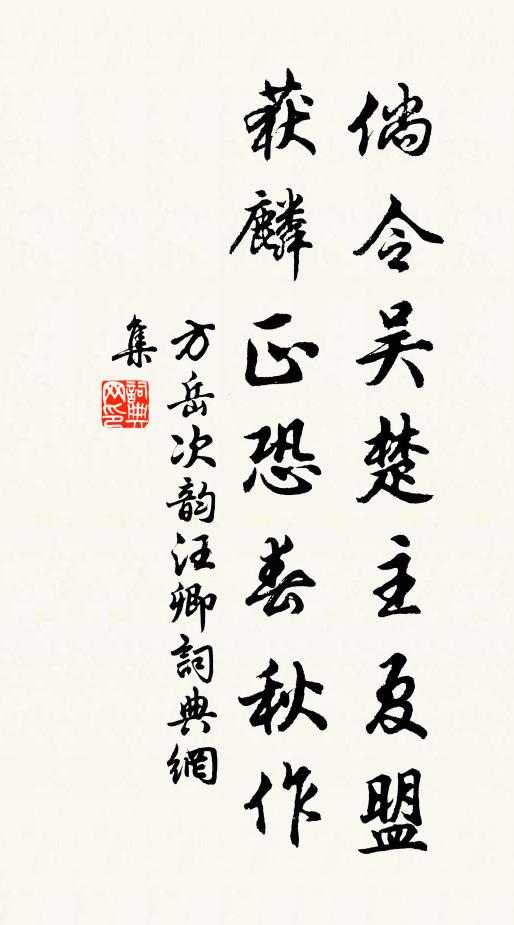 倘令吴楚主夏盟
获麟正恐春秋作
方岳次韵汪卿詞典網
集
詞典
网印